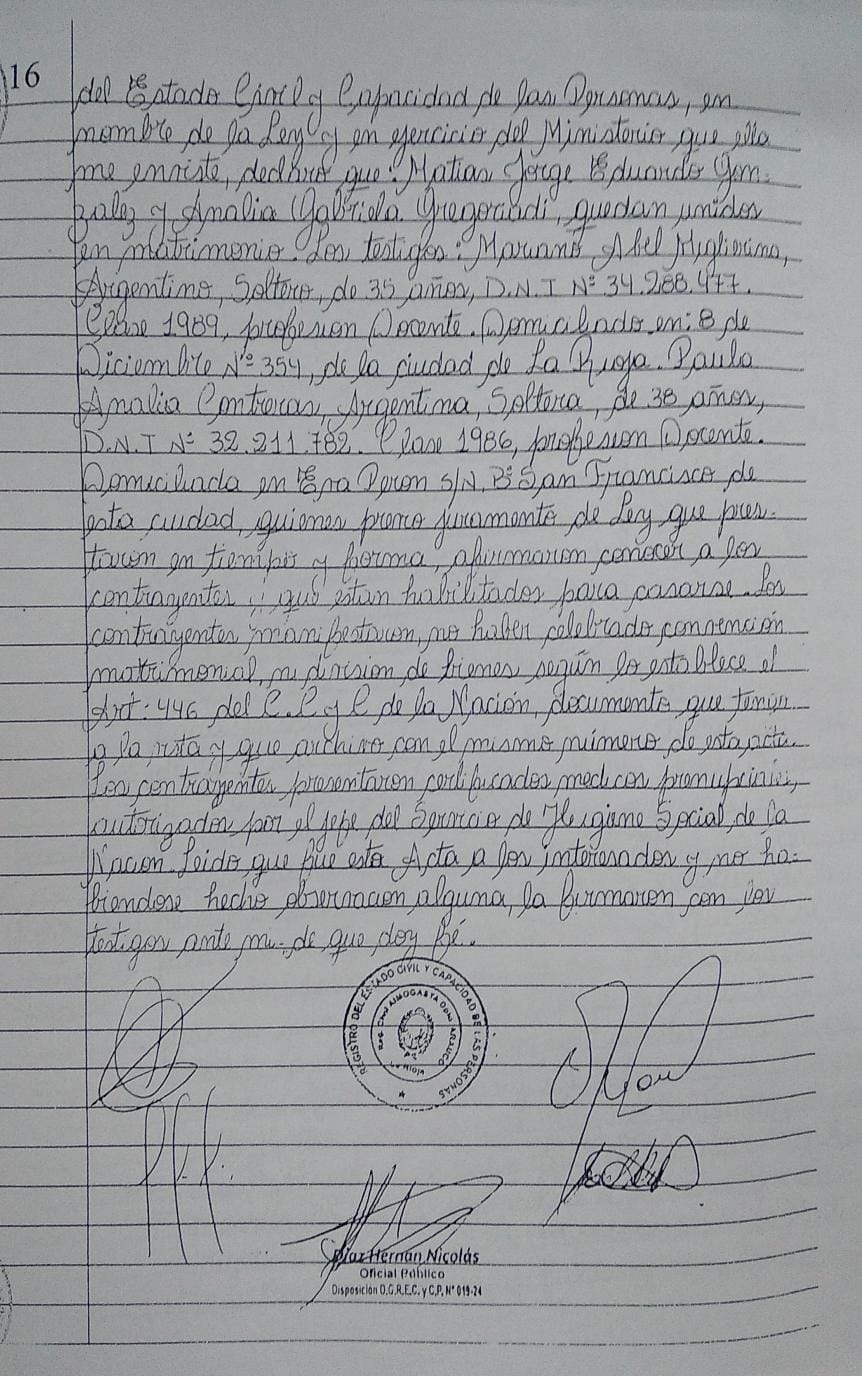 16
del Estado Civil y Capacidad de las Personas, en
nombre de la Ley y en ejercicio del Ministerio que ella
me enviste, declaro que: Matias Jorge Eduardo Gon-
zalez y Analia Gabriela Gregoriadi, quedan unidos
en matrimonio. Los testigos: Mariano Abel Miglierina,
Argentino, Soltero, de 35 años, D.N.I Nº 34.288.477.
Clase 1989, profesion Docente. Domiciliado en: 8 de
Diciembre Nº 354, de la ciudad de La Rioja. Paula
Analia Contreras, Argentina, Soltera, de 38 años,
D.N.I Nº 32.211.782. Clase 1986, profesion Docente.
Domiciliada en Eva Peron S/N, Bº San Francisco de
esta ciudad, quienes previo juramento de Ley que pres-
taron en tiempo y forma, afirmaron conocer a los
contrayentes y que estan habilitados para casarse. Los
contrayentes manifestaron, no haber celebrado convención
matrimonial, ni division de bienes según lo establece el
Art: 446 del C.C y C de la Nación, documento que tengo
a la vista y que archivo con el mismo número de esta acta.
Los contrayentes presentaron certificados medicos prenupciales,
autorizados por el jefe del Servicio de Higiene Social, de la
Nacion. Leido que fue esta Acta a los interesados y no ha-
biendose hecho observacion alguna, la firmaron con los
testigos ante mi. de que doy fé.
REGISTRO DEL ESTADO CIVIL Y CAPACIDAD DE LAS PERSONAS
REG. CIVIL AIMOGASTA DPTO ARAUCO
LA RIOJA
Díaz Hernán Nicolás
Oficial Público
Disposición D.G.R.E.C. y C.P. Nº 019-24